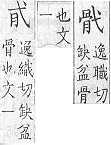 骮
逸職切
缺盆骨
也文
一
逸織切缺盆
骨也文一